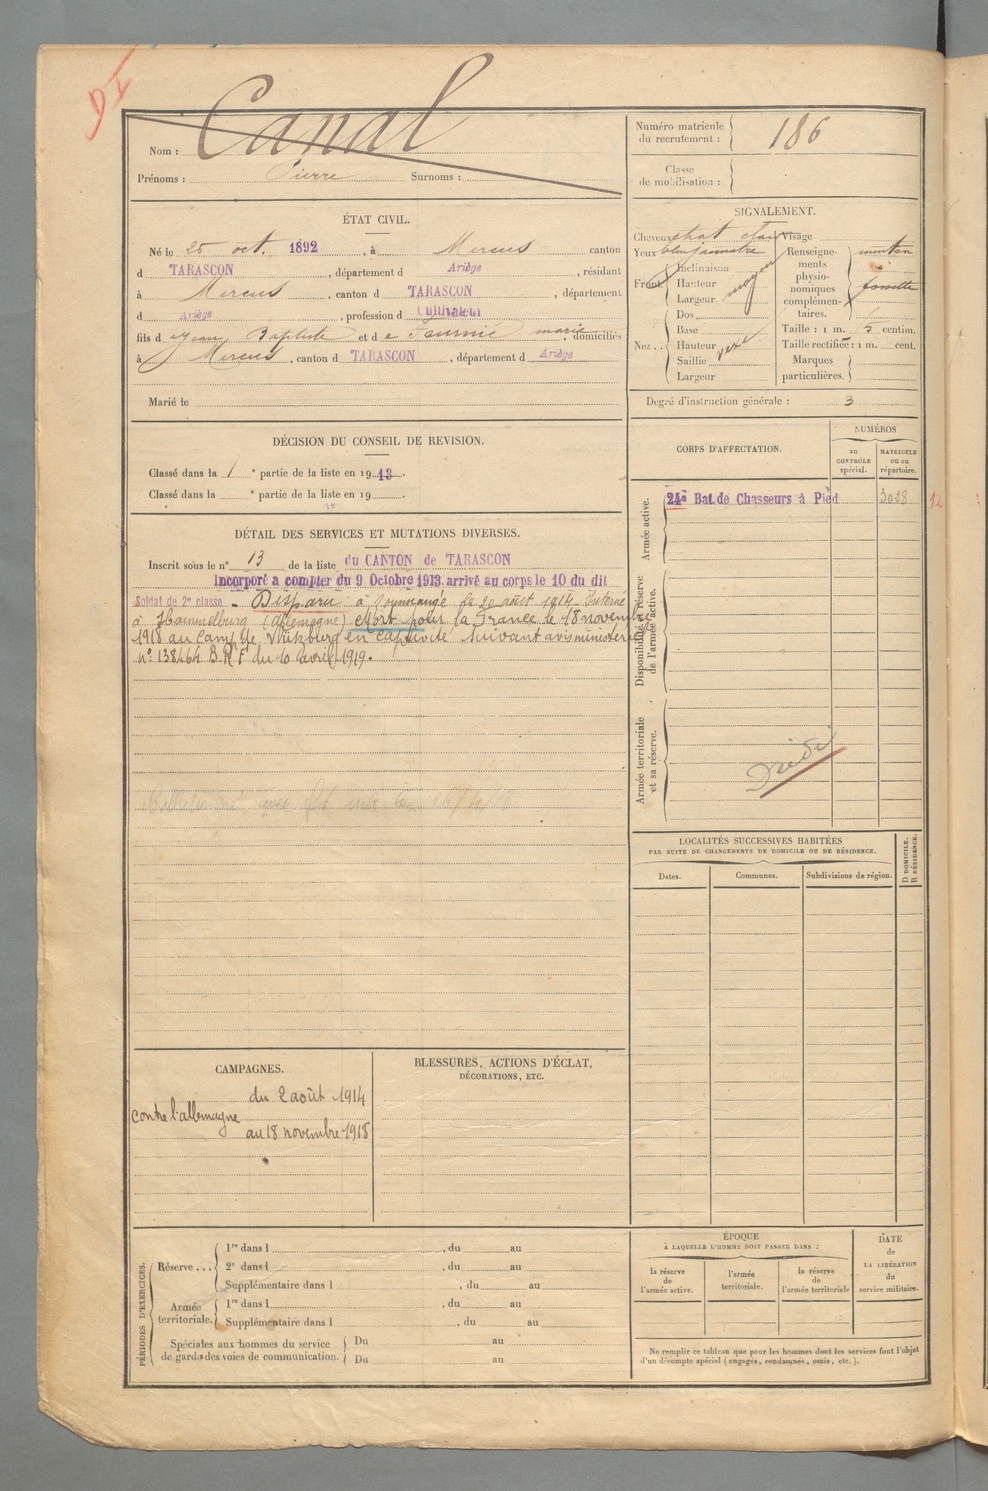 DI
Nom : Canal
Prénoms : Pierre Surnoms :
Numéro matricule du recrutement : 186
Classe de mobilisation :
ÉTAT CIVIL.
Né le 25 oct. 1892, à Mercus canton
d TARASCON, département d Ariège, résidant
à Mercus, canton d TARASCON, département
d Ariège, profession d Cultivateur
fils d e Jean Baptiste et d e Fournié marie, domiciliés
à Mercus, canton d TARASCON, département d Ariège
Marié le
SIGNALEMENT.
Cheveux chat clair Visage
Yeux bleu jaunatre
Front Inclinaison
Hauteur
Largeur moyen
Nez .. Dos
Base
Hauteur
Saillie
Largeur
Renseignements physionomiques complémentaires. menton fossette
Taille : 1 m. centim.
Taille rectifiée : 1 m. cent.
Marques particulières.
Degré d'instruction générale : 3
DÉCISION DU CONSEIL DE REVISION.
Classé dans la 1e partie de la liste en 1913.
Classé dans la e partie de la liste en 19 .
CORPS D'AFFECTATION.
NUMÉROS
au CONTRÔLE spécial.
MATRICULE ou au répertoire.
Armée active.
24e Bat. de Chasseurs à Pied 3028
Disponibilité et réserve de l'armée active.
Armée territoriale et sa réserve.
DÉTAIL DES SERVICES ET MUTATIONS DIVERSES.
Inscrit sous le n° 13 de la liste du CANTON de TARASCON
Incorporé à compter du 9 Octobre 1913. arrivé au corps le 10 du dit
Soldat de 2e classe - Disparu à le 20 août 1914. Interné
à Hammelburg (Allemagne) Mort pour la France le 18 novembre
1918 au camp de Wützburg en captivité suivant avis ministériel
n° 138464 B.R.F du 10 avril 1919.
LOCALITÉS SUCCESSIVES HABITÉES
PAR SUITE DE CHANGEMENTS DE DOMICILE OU DE RÉSIDENCE.
Dates. Communes. Subdivisions de région. D DOMICILE. R RÉSIDENCE.
CAMPAGNES.
contre l'allemagne du 2 août 1914
au 18 novembre 1918
BLESSURES, ACTIONS D'ÉCLAT,
DÉCORATIONS, ETC.
PÉRIODES D'EXERCICES.
Réserve ... 1re dans l , du au
2e dans l , du au
Supplémentaire dans l , du au
Armée territoriale. 1re dans l , du au
Supplémentaire dans l , du au
Spéciales aux hommes du service de garde des voies de communication. Du au
Du au
ÉPOQUE
À LAQUELLE L'HOMME DOIT PASSER DANS :
la réserve de l'armée active.
l'armée territoriale.
la réserve de l'armée territoriale
DATE de LA LIBÉRATION du service militaire.
Ne remplir ce tableau que pour les hommes dont les services font l'objet
d'un décompte spécial (engagés, condamnés, omis, etc.).